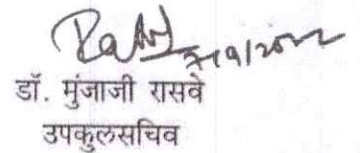 7/9/2022
डॉ. मुंजाजी रासवे
उपकुलसचिव